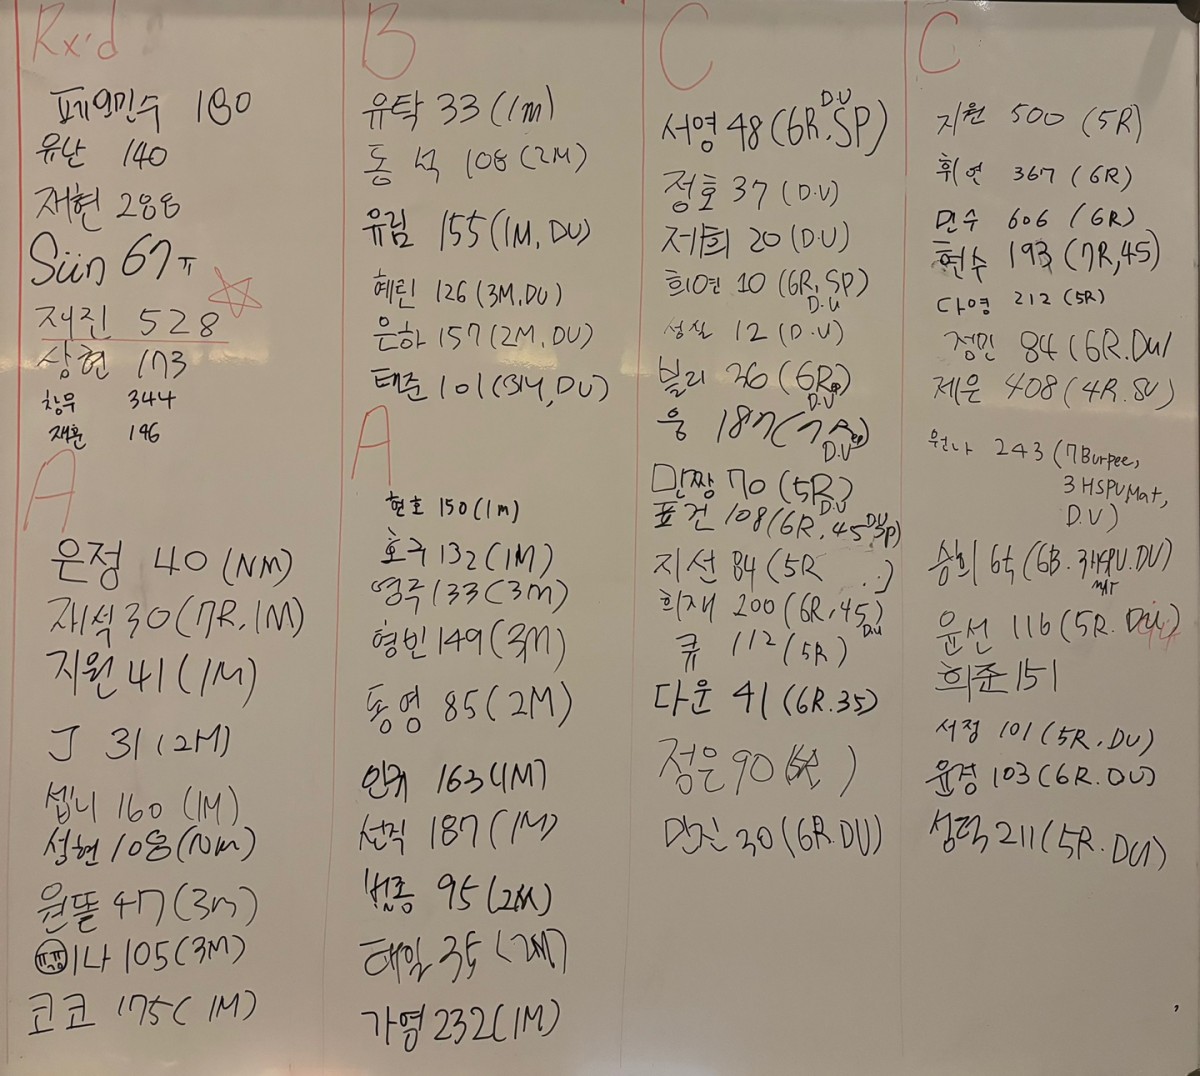 Rx'd
페의민수 180
유난 140
재현 288
Siin 67π
재진 528
상현 173
창우 344
재훈 196
A
은정 40 (NM)
재석 30 (7R, 1M)
지원 41 (1M)
J 31 (2M)
셉니 160 (1M)
설현 108 (Nm)
원똘 47 (3m)
1나 105 (3M)
코코 175 (1M)
B
유탁 33 (1m)
동석 108 (2M)
유림 155 (1M, DU)
혜린 126 (3M, DU)
은하 157 (2M, DU)
태준 101 (3M, DU)
A
현호 150 (1m)
호구 132 (1M)
영주 133 (3m)
형빈 149 (3M)
동영 85 (2M)
인규 163 (1M)
선직 187 (1M)
범종 95 (2M)
태일 35 (2M)
가영 232 (1M)
C
서영 48 (6R, SP)
D.U
정호 37 (D.U)
제희 20 (D.U)
희연 10 (6R, SP)
D.U
성실 12 (D.U)
빌리 36 (6R)
D.U
웅 187 (7R)
D.U
민짱 70 (5R)
D.U
표건 108 (6R, 45 SP)
DU
지선 84 (5R
희재 200 (6R, 45)
D.U
큐 112 (5R)
다운 41 (6R. 35)
정은 90
민진 30 (6R. DU)
C
지원 500 (5R)
휘연 367 (6R)
민수 606 (6R)
현수 193 (7R, 45)
다영 212 (5R)
정민 84 (6R. DU)
제은 408 (4R. SU)
원나 243 (7Burpee,
3HSPU Mat,
D.U)
승희 (6B. 3HSPU. DU)
MAT
윤선 116 (5R. DU)
희준 151
서정 101 (5R. DU)
윤경 103 (6R. DU)
성탁 211 (5R. DU)